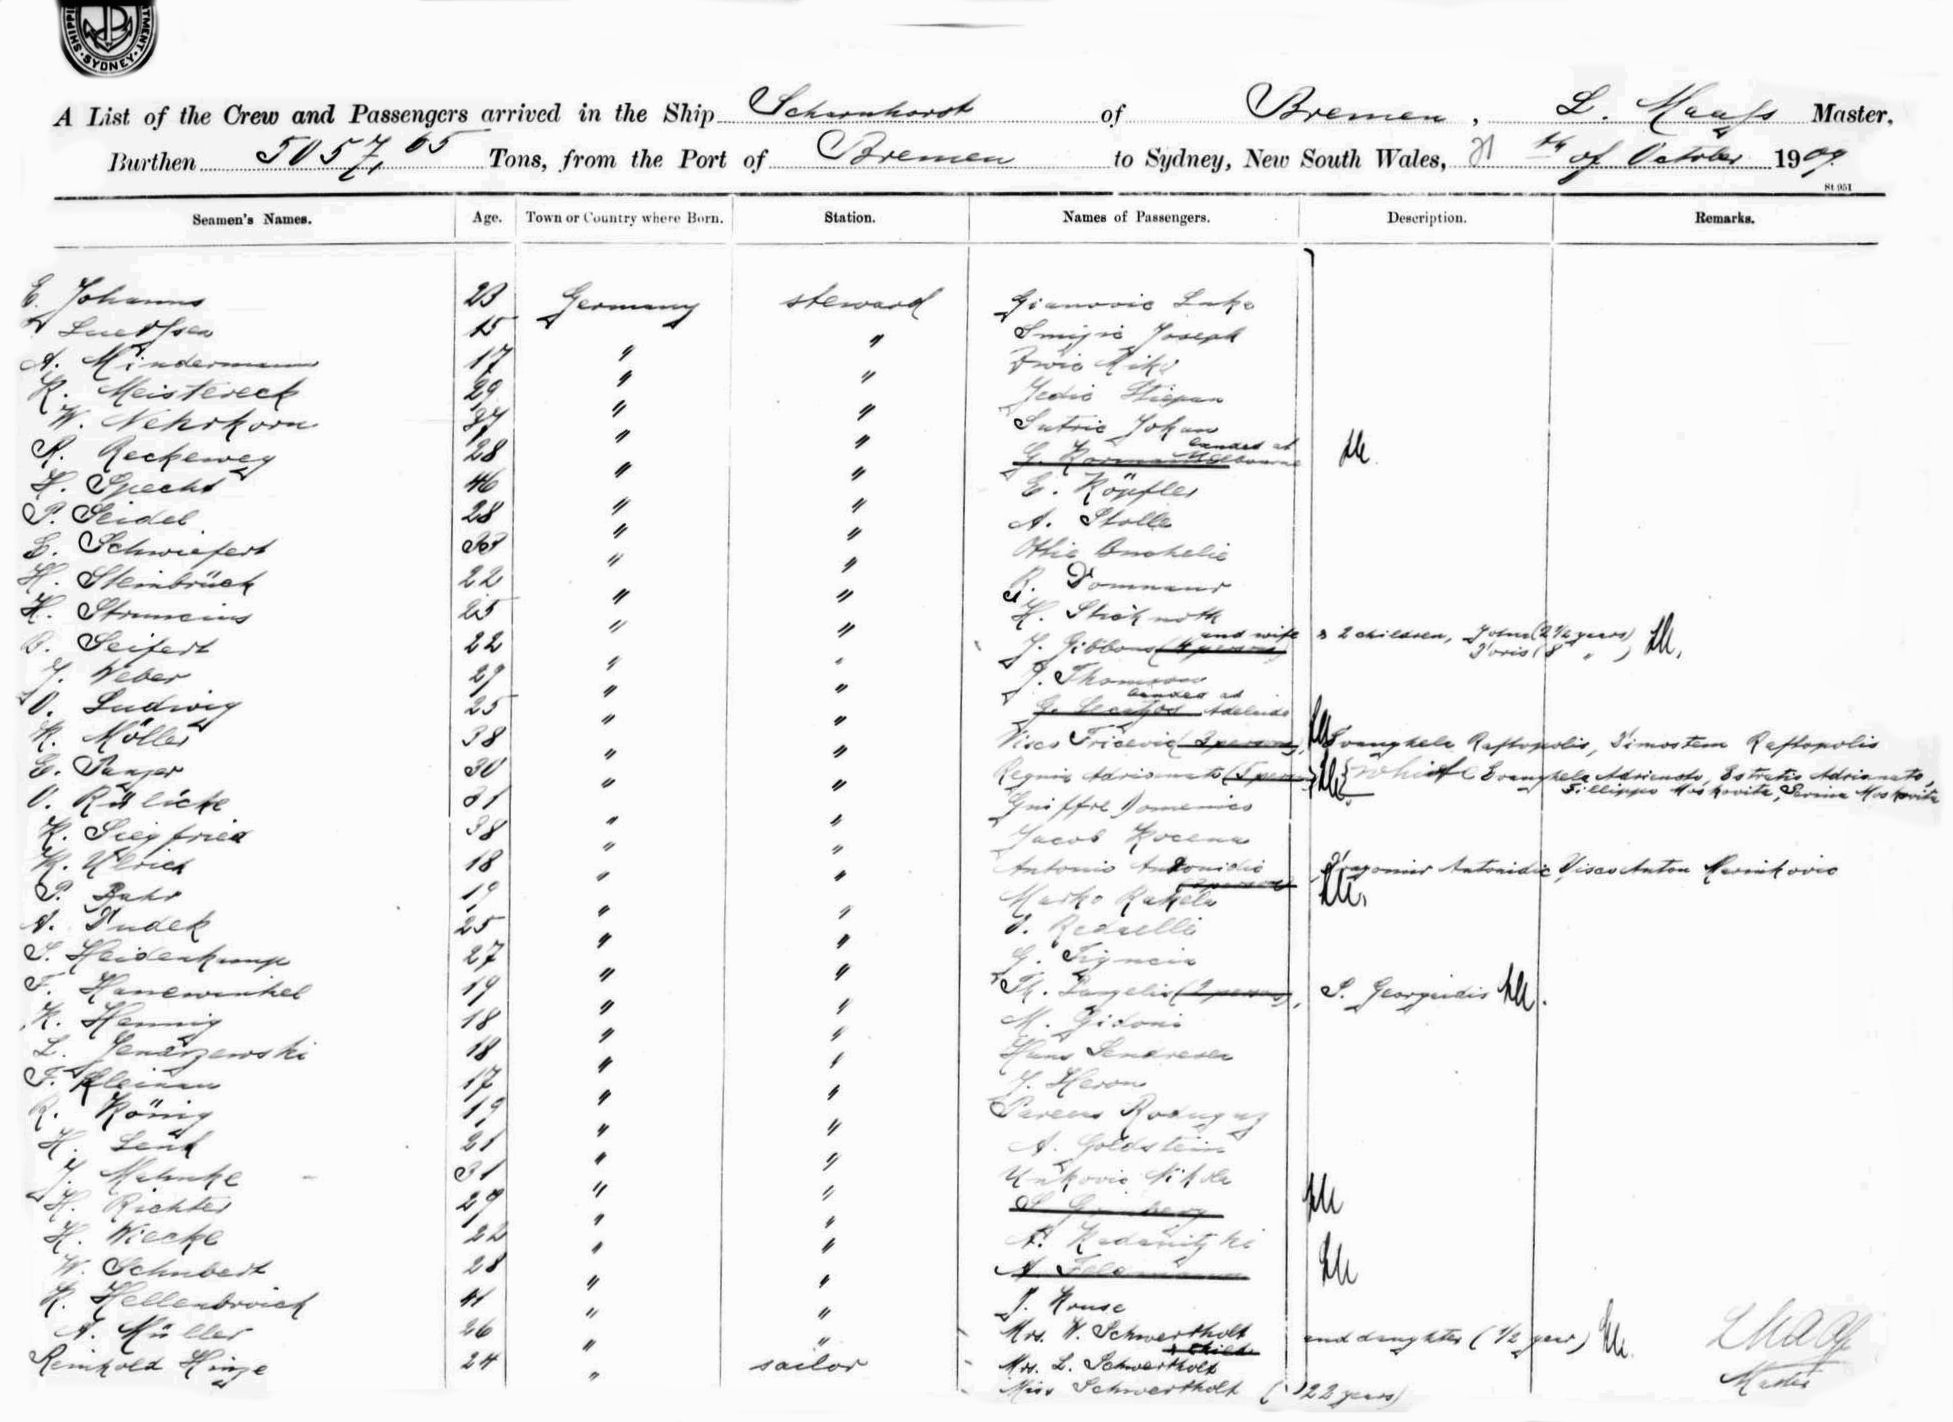 SHIPPING
SYDNEY
A List of the Crew and Passengers arrived in the Ship Scharnhorst of Bremen, L. Maass Master,
Burthen 5057,65 Tons, from the Port of Bremen to Sydney, New South Wales, of October 1909
St 951
Seamen's Names. Age. Town or Country where Born. Station. Names of Passengers. Description. Remarks.
E. Johanns 23 Germany steward Gianovic Luke
15 " " Smijic Joseph
A. Mindermann 17 " " Mike
K. Meistereck 29 " " Jedic Stiepan
W. Nehrkorn " " Sutric Johan
R. Reckeweg 28 " " G. landed at Melbourne
H. Specht 46 " " E. Köpfler
P. Seidel 28 " " A. Stolle
E. Schwiefert 33 " "
H. Steinbrück 22 " " R. Domnaur
H. Struncius 25 " " H.
B. Seifert 22 " " J. Gibbons (4 persons) and wife & 2 children, John (2 1/2 years)
Doris (8 " )
J. Weber 29 " " J. Thomson
O. Ludwig 25 " " G. landed at Adelaide
K. Möller 38 " " Visco Fricevic (3 persons), Evanghela Raftopolis, Dimostem Raftopolis
E. Panzer 30 " " Regnis Adrianato (5 persons) Evanghela Adrianato, Estratis Adrianato,
Fillippo Moskovita, Moskovita
O. Rülicke 31 " " Domenico
K. Siegfried 38 " " Jacob Kocena
K. Ulrich 18 " " Antonio Antonidic (3 persons), Dragomir Antonidic, Visco Anton Marinkovic
P. Bahr 19 " " Marko Rakela
A. Dudek 25 " " J. Redaelli
S. Heidenkamp 27 " " G.
F. Hanewinkel 19 " " Th. Pangelis (2 persons), S. Georgeidis
K. Hennig 18 " " M. Gidoni
L. Jendrzewski 18 " " Hans
F. Kleinau 17 " " J. Heron
R. König 19 " "
H. Lenk 21 " " A. Goldstein
J. Mahnke 31 " " Unkovic Nikola
H. Richter 29 " " S.
H. Wiecke 22 " " A.
W. Schubert 28 " " A.
K. Hellenbroich 41 " " J. Rouse
A. Müller 26 " " Mrs. W. Schwertholt & child and daughter (1/2 year)
Reinhold Hinze 24 " sailor Mrs. L. Schwertholt
Miss Schwertholt (22 years)
L Maass
Master